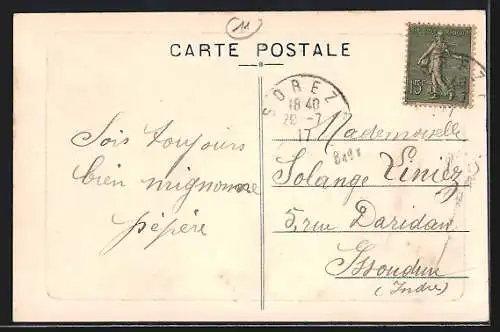 11
CARTE POSTALE
SOREZE
18 40
20 -7
17
15c
Sois toujours
bien mignonne
pépère
Mademoiselle
Solange
5, rue Daridan
Issoudun
(Indre)